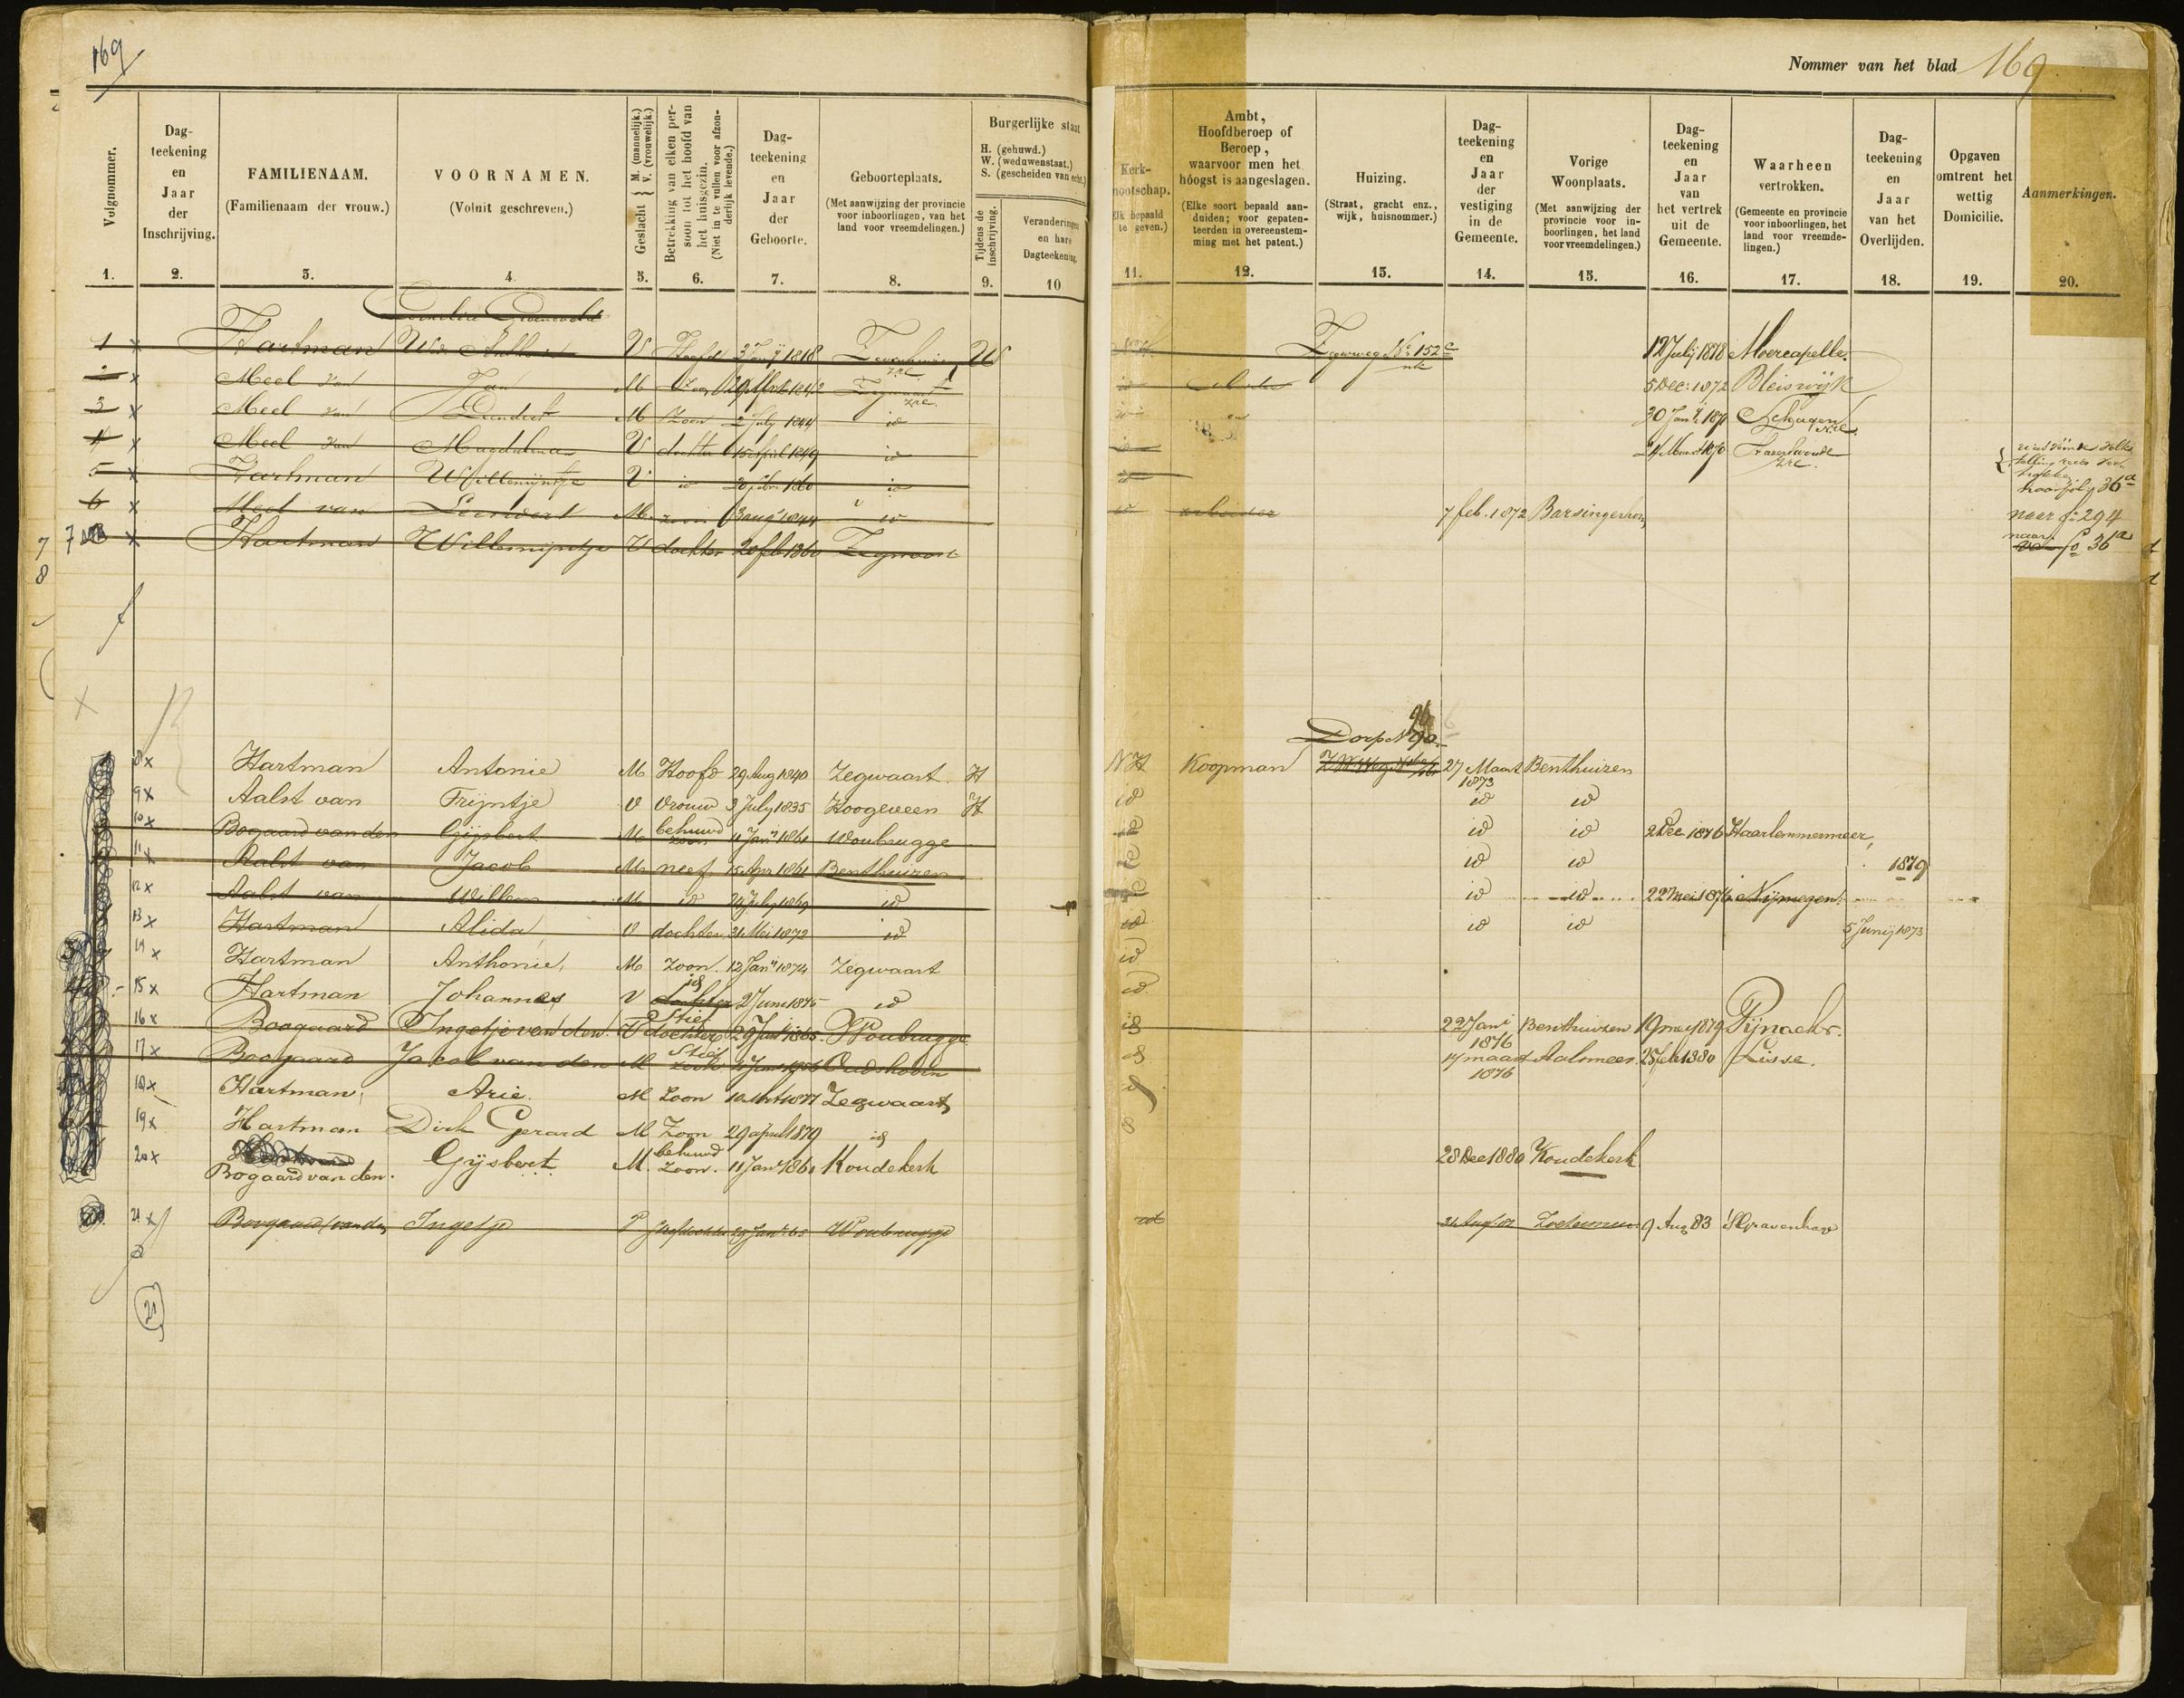 169
Nommer van het blad 169
Volgnommer.
1.
Dag-
teekening
en
Jaar
der
Inschrijving.
2.
FAMILIENAAM.
(Familienaam der vrouw.)
3.
VOORNAMEN.
(Voluit geschreven.)
4.
Geslacht { M. (mannelijk.)
V. (vrouwelijk.)
5.
Betrekking van elken per-
soon tot het hoofd van
het huisgezin.
(Niet in te vullen voor afzon-
derlijk levende.)
6.
Dag-
teekening
en
Jaar
der
Geboorte.
7.
Geboorteplaats.
(Met aanwijzing der provincie
voor inboorlingen, van het
land voor vreemdelingen.)
8.
Burgerlijke staat
H. (gehuwd.)
W. (weduwenstaat.)
S. (gescheiden van echt.)
Tijdens de
inschrijving.
9.
Veranderingen
en hare
Dagteekening.
10
Kerk-
nootschap.
Elk bepaald
te geven.)
11.
Ambt,
Hoofdberoep of
Beroep,
waarvoor men het
hóogst is aangeslagen.
(Elke soort bepaald aan-
duiden; voor gepaten-
teerden in overeenstem-
ming met het patent.)
12.
Huizing.
(Straat, gracht enz.,
wijk, huisnommer.)
13.
Dag-
teekening
en
Jaar
der
vestiging
in de
Gemeente.
14.
Vorige
Woonplaats.
(Met aanwijzing der
provincie voor in-
boorlingen, het land
voor vreemdelingen.)
15.
Dag-
teekening
en
Jaar
van
het vertrek
uit de
Gemeente.
16.
Waarheen
vertrokken.
(Gemeente en provincie
voor inboorlingen, het
land voor vreemde-
lingen.)
17.
Dag-
teekening
en
Jaar
van het
Overlijden.
18.
Opgaven
omtrent het
wettig
Domicilie.
19.
Aanmerkingen.
20.
1 x Hartman V Hoofd 1818 W 152 12 July 1878 Moercapelle.
x Meel van Jan M Zoon 1842 5 Dec: 1872 Bleiswijk
3 x Meel van Leendert M Zoon 2 July 1844 id 30 Jan 1871 Schagen
4 x Meel van Magdalena V dochter 15 April 1849 id 1870 Hazerswoude
5 x Hartman Willemijntje V id 1860 id
6 x Meel van Leendert M zoon 3 aug 1844 id arbeider 7 feb. 1872 Barsingerhorn naar fo 294
7 x Hartman Willemijntje V dochter 20 feb 1860 Zegwaart naar fo 36a
7
8
96
Dorp No 90
8 x Hartman Antonie M Hoofd 29 Aug 1840 Zegwaart H NH Koopman 27 Maart 1873 Benthuizen
9 x Aalst van Trijntje V Vrouw 3 July 1835 Hoogeveen H id id id
10 x Bogaard van den Gijsbert M behuwd zoon 11 Jan 1861 Woubrugge id id 2 Dec 1876 Haarlemmermeer,
11 x Aalst van Jacob M neef 15 Apr 1861 Benthuizen id id 1879
12 x Aalst van Willem M id 24 July 1869 id id id 22 Mei 1876 Nijmegen.
13 x Hartman Alida V dochter 31 Mei 1872 id id id id 5 Junij 1873
14 x Hartman Anthonie, M zoon. 12 Jan 1874 Zegwaart id
15 x Hartman Johannes V id dochter 2 June 1875 id id
16 x Boogaard Ingetje van den V Stief dochter 29 Jan 1865 Woubrugge id 22 Jani 1876 Benthuizen 19 mei 1879 Pijnacker.
17 x Boogaard Jacob van den M Stief zoon Oudshoorn 14 maart 1876 Aalsmeer 25 feb 1880 Lisse.
18 x Hartman Arie. M Zoon 10 Mrt 1877 Zegwaart
19 x Hartman Dirk Gerard M Zoon 29 april 1879 id
20 x Bogaard van den. Gijsbert M. behuwd Zoon. 11 Jan 1861 Koudekerk 28 Dec 1880 Koudekerk
21 x Bogaard van den Ingetje V stiefdochter 29 Jan 65 Woubrugge 9 Aug 83 's Gravenhage
21